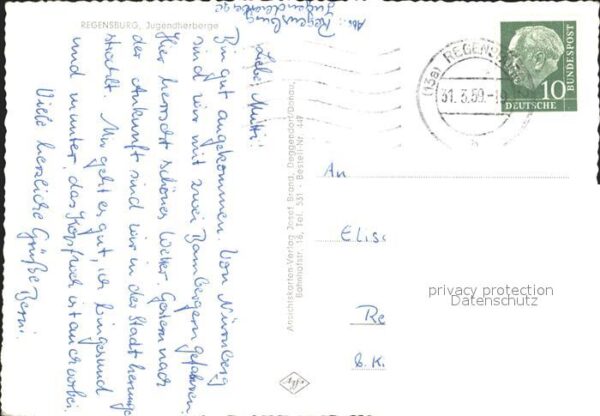 REGENSBURG, Jugendherberge
Abs.: Regensburg
Jugendherberge
Liebe Mutti!
Bin gut angekommen. Von Nürnberg
sind wir mit zwei Bambergern gefahren.
Hier herrscht schönes Wetter. Gestern nach
der Ankunft sind wir in der Stadt herumge
strolcht. Mir geht es gut, ich bin gesund
und munter, das Kopfweh ist auch vorbei.
Viele herzliche Grüße
Ansichtskarten-Verlag Josef Brand, Deggendorf/Donau,
Bahnhofstr. 16, Tel. 531 - Bestell-Nr. 449
(13a) REGENSBURG
31.3.59.-
b
10
DEUTSCHE
BUNDESPOST
An
Elis
Re
B.K.
privacy protection
Datenschutz